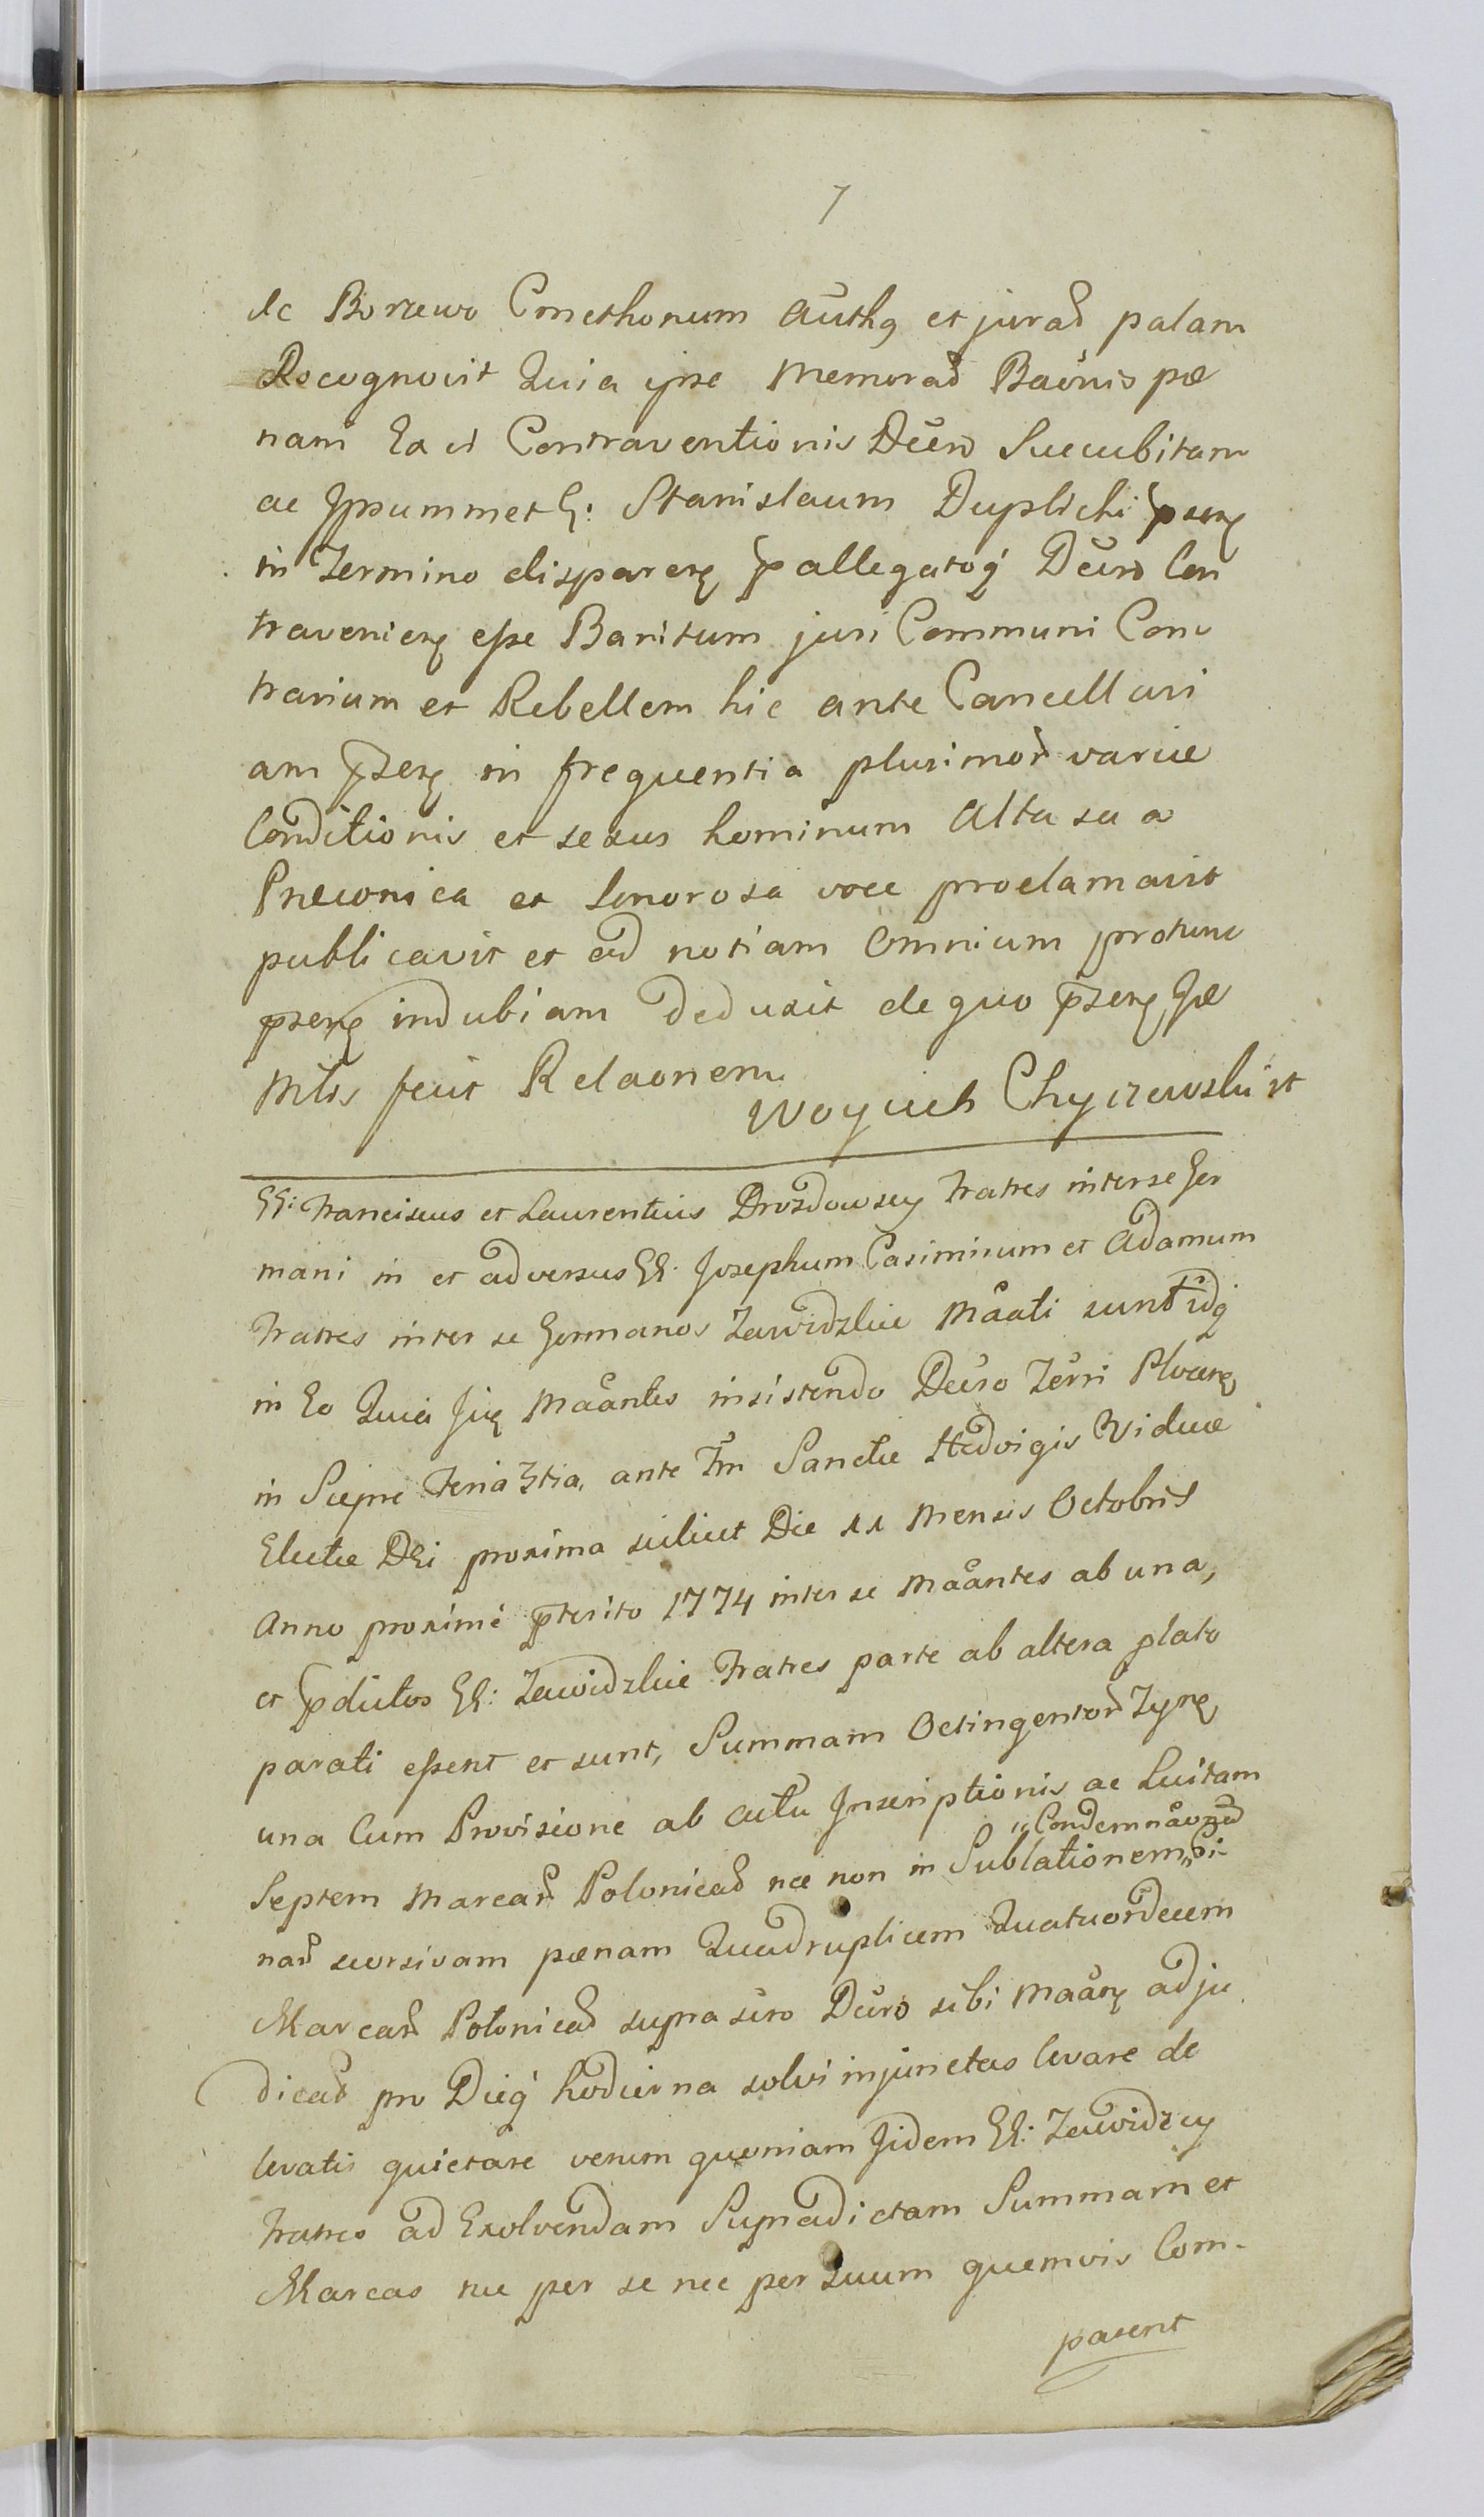 7
de Borzewo Cmethonum Authq et jurad palam
Recognovit Quia ipse Memorad Baönis pæ
nam Ea et Contraventionis Decro Succubitam
ac Ipsummet G: Stanislaum Duplichi pserę
in Termino disparerę p allegatoq Decro Con
travenierę esse Banitum juri Communi Con
trarium et Rebellem hic ante Cancellari
am pserę in frequentia plurimor variæ
Conditionis et sexus hominum Alta sua
Præconica et Sonorosa voce proclamavit
publicavit et ad notiam Omnium protunc
pserę indubiam deduxit de quo pserę Jæ
Mtlis fecit Relaonem
Woyciech Chyczewski it
GG: Franciscus et Laurentius Drozdowscy Fratres inter se Ger
mani in et adversus GG. Josephum Casimirum et Adamum
Fratres inter se Germanos Zawidzkie Maati sunt idq
in Eo Quia Jię Maantes insistendo Decro Terri Plocerę
in Sierpc Feria 3tia, ante Fm Sanctæ Hedvigis Viduæ
Electæ Dei proxima scilicet Die 11 Mensis Octobris
Anno proxime pterito 1774 inter se Maantes ab una,
et pdictos GG: Zawidzkie Fratres parte ab altera plato
parati essent et sunt, Summam Octingentor Tynę
una Cum Provisione ab actu Inscriptionis ac Luitam
„Condemnaonũ
Septem Marcar Polonicad nec non in Sublationem „Bi-
nar seorsivam pænam Quadruplicem Quatuordecem
Marcar Polonicad supra scro Decro sibi Maarę adju
dicat pro Dieq hodierna solvi injunctas levare de
levatis quietare verum quoniam Jidem GG: Zawidzcy
Fratres ad Exolvendam Supradictam Summam et
Marcas nec per se nec per Suum quemvis Com-
parent